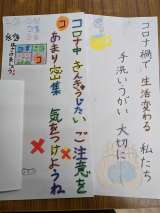 コロナ禍で生活変わる 私たち
手洗いうがい 大切に
コロナ中 きんきゅうじたい ご注意を
あまり密集 気をつけようね